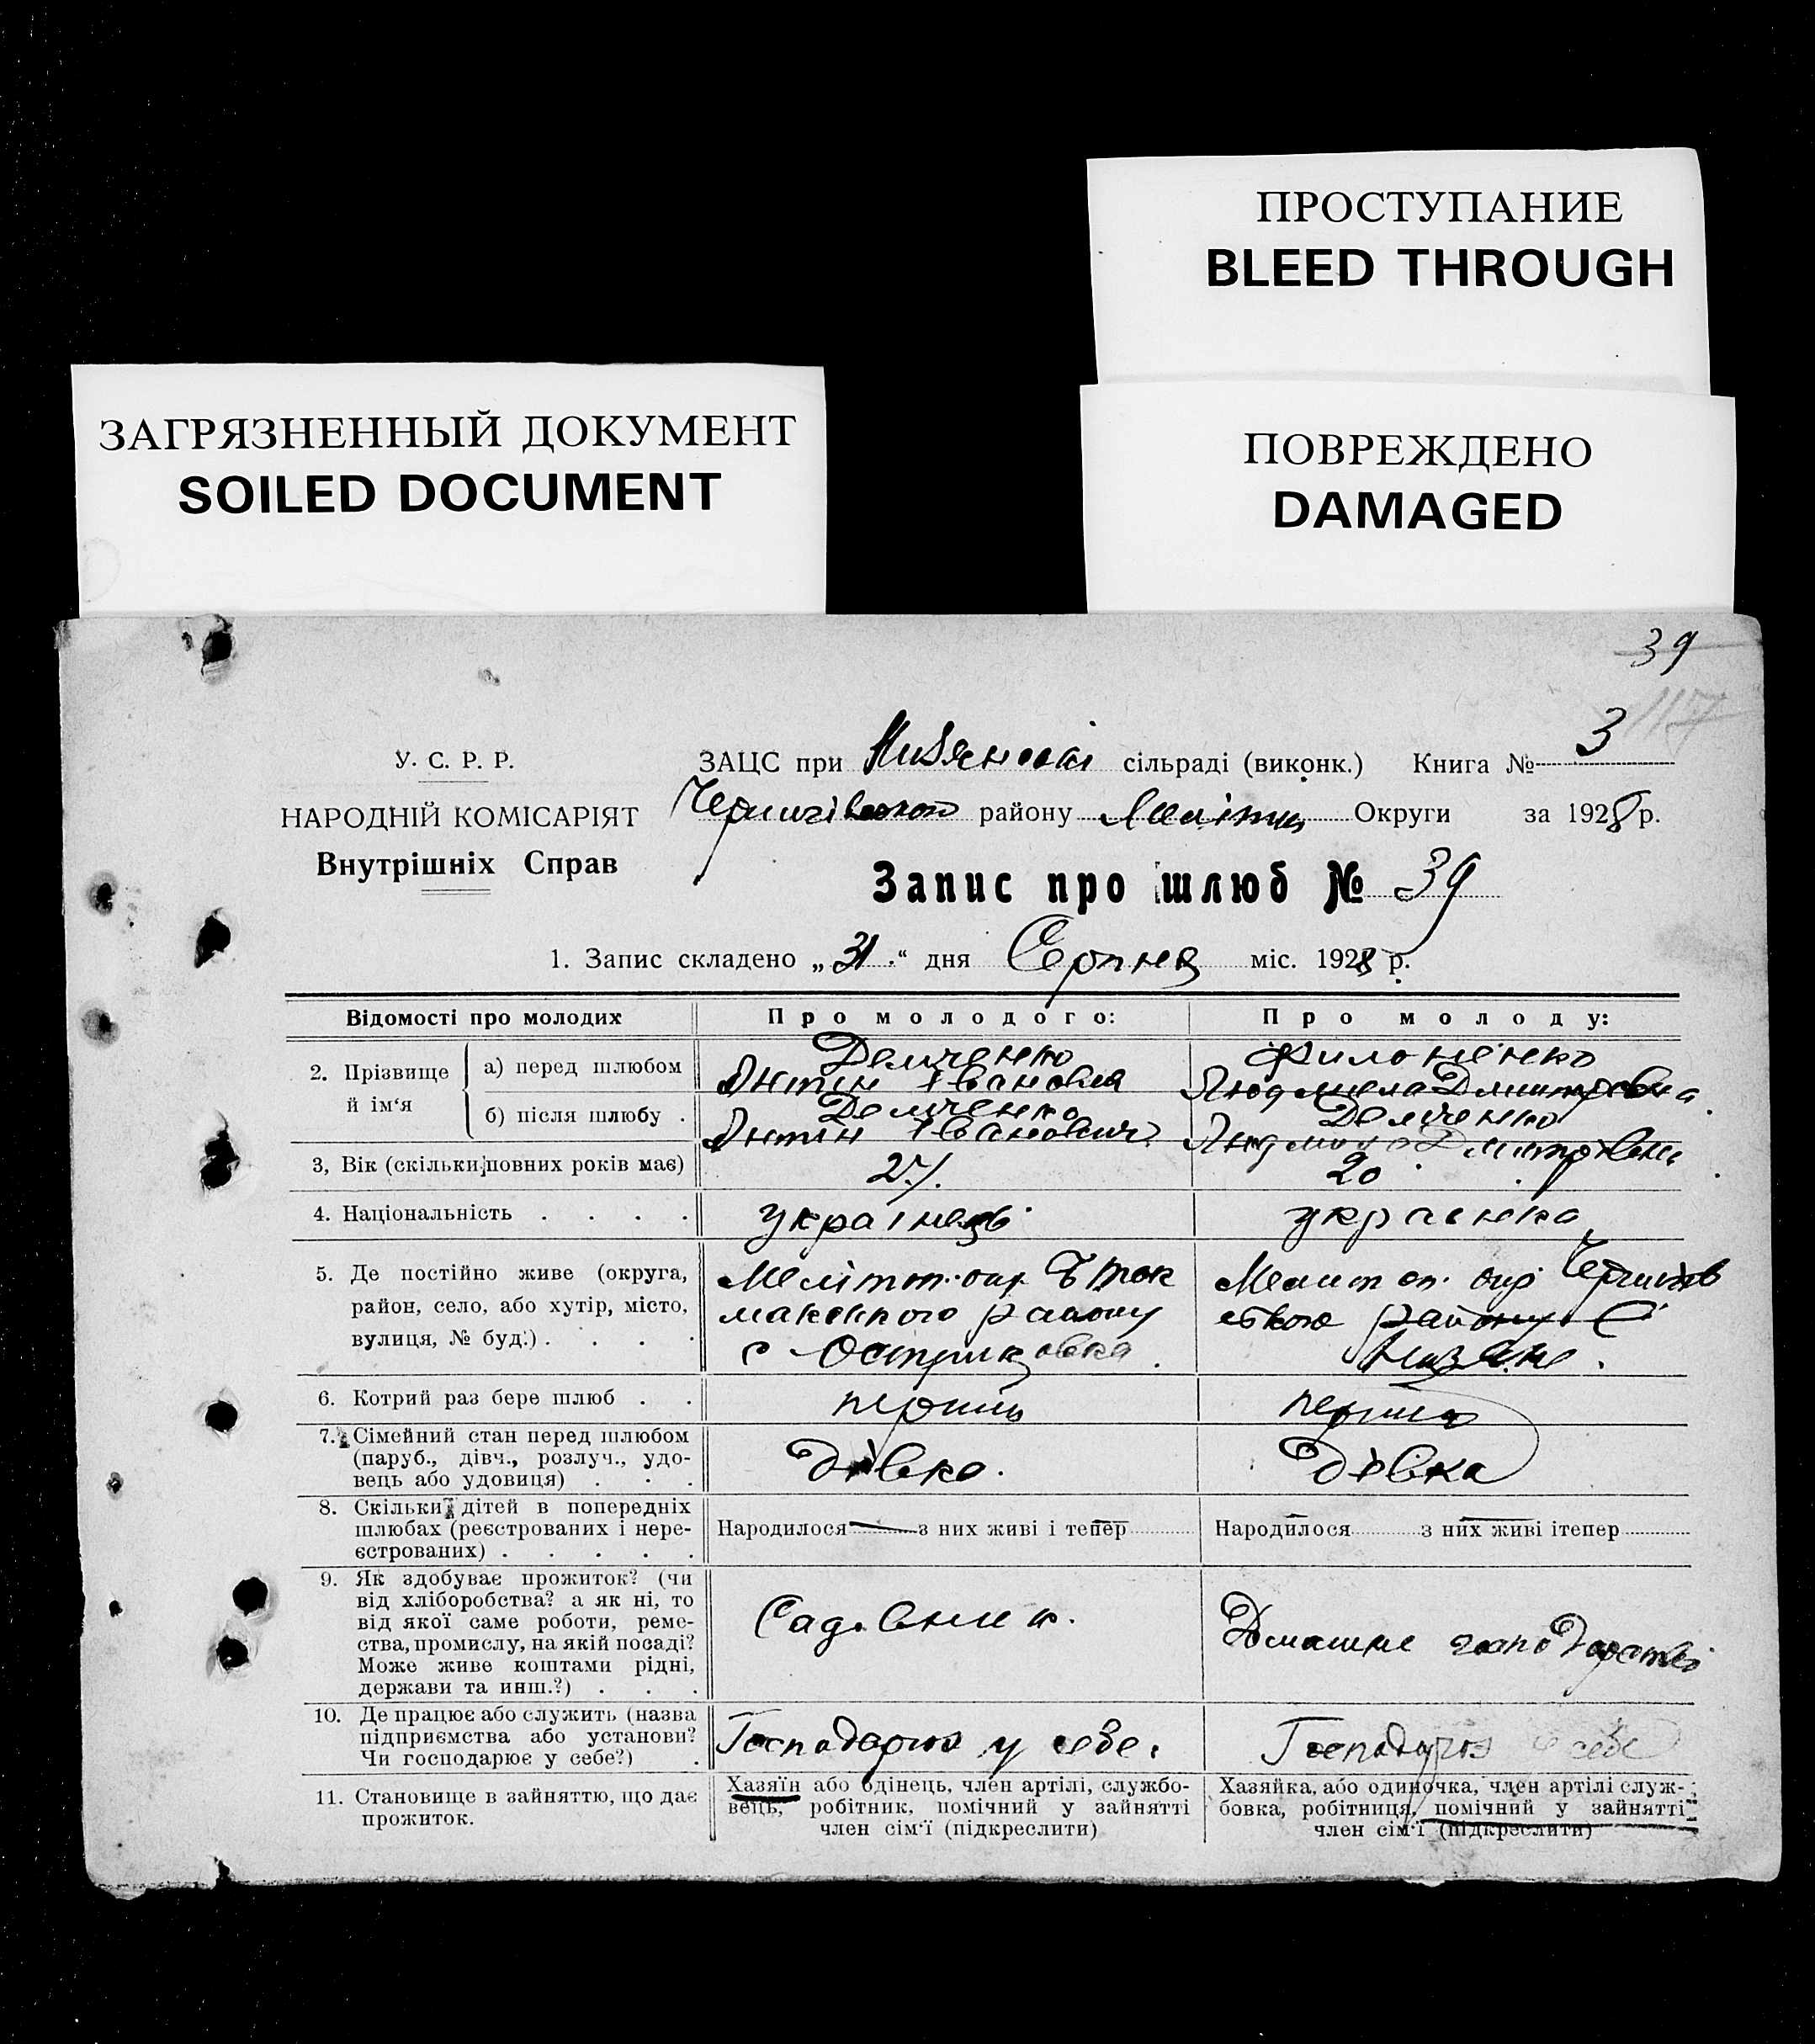 ПРОСТУПАНИЕ
BLEED THROUGH
ЗАГРЯЗНЕННЫЙ ДОКУМЕНТ
SOILED DOCUMENT
ПОВРЕЖДЕНО
DAMAGED
39
117
У. С. Р. Р.
НАРОДНІЙ КОМІСАРІЯТ
Внутрішніх Справ
ЗАЦС при сільраді (виконк.) Книга № 3
Чернигівського району Меліт Округи за 1928 р.
Запис про шлюб № 39
1. Запис складено „31“ дня Серпня міс. 1928 р.
Відомості про молодих Про молодого: Про молоду:
2. Прізвище й ім‘я
а) перед шлюбом
Демченко
Антін Іванович
Филоненко
Людмила Дмитровна
б) після шлюбу .
Демченко
Антін Іванович
Демченко
Людмила Дмитровна
3, Вік (скільки повних років має) 27. 20
4. Національність . . . . українець українка
5. Де постійно живе (округа,
район, село, або хутір, місто,
вулиця, № буд.) . . . .
Меліттоп. окр. Б Ток
макського району
с Остриковка
Мелитоп. окр Чернигів
ського району С.
6. Котрий раз бере шлюб . . перший перший
7. Сімейний стан перед шлюбом
(паруб., дівч., розлуч., удо-
вець або удовиця) . . .
дівка.
дівка
8. Скільки дітей в попередніх
шлюбах (реєстрованих і нере-
єстрованих) . . . . .
Народилося — з них живі і тепер
Народилося — з них живі ітепер
9. Як здобуває прожиток? (чи
від хліборобства? а як ні, то
від якої саме роботи, реме-
ства, промислу, на якій посаді?
Може живе коштами рідні,
держави та инш.?) . . .
Садівник.
Домашне господарстві
10. Де працює або служить (назва
підприємства або установи?
Чи господарює у себе?) .
Господарює у себе.
Господарює у себе
11. Становище в зайняттю, що дає
прожиток.
Хазяїн або одінець, член артілі, службо-
вець, робітник, помічний у зайнятті
член сім‘ї (підкреслити)
Хазяйка, або одиночка, член артілі служ-
бовка, робітниця, помічний у зайнятті
член сім‘ї (підкреслити)